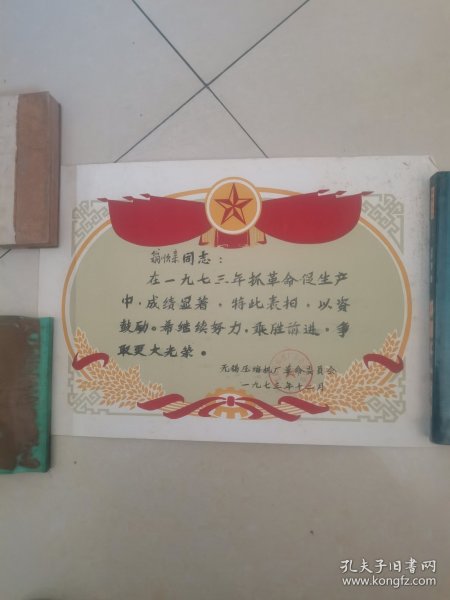 同志：
在一九七三年抓革命促生产
中，成绩显著，特此表扬，以资
鼓励。希继续努力，乘胜前进，争
取更大光荣。
无锡压缩机厂革命委员会
一九七三年十二月
孔夫子旧书网
www.kongfz.com